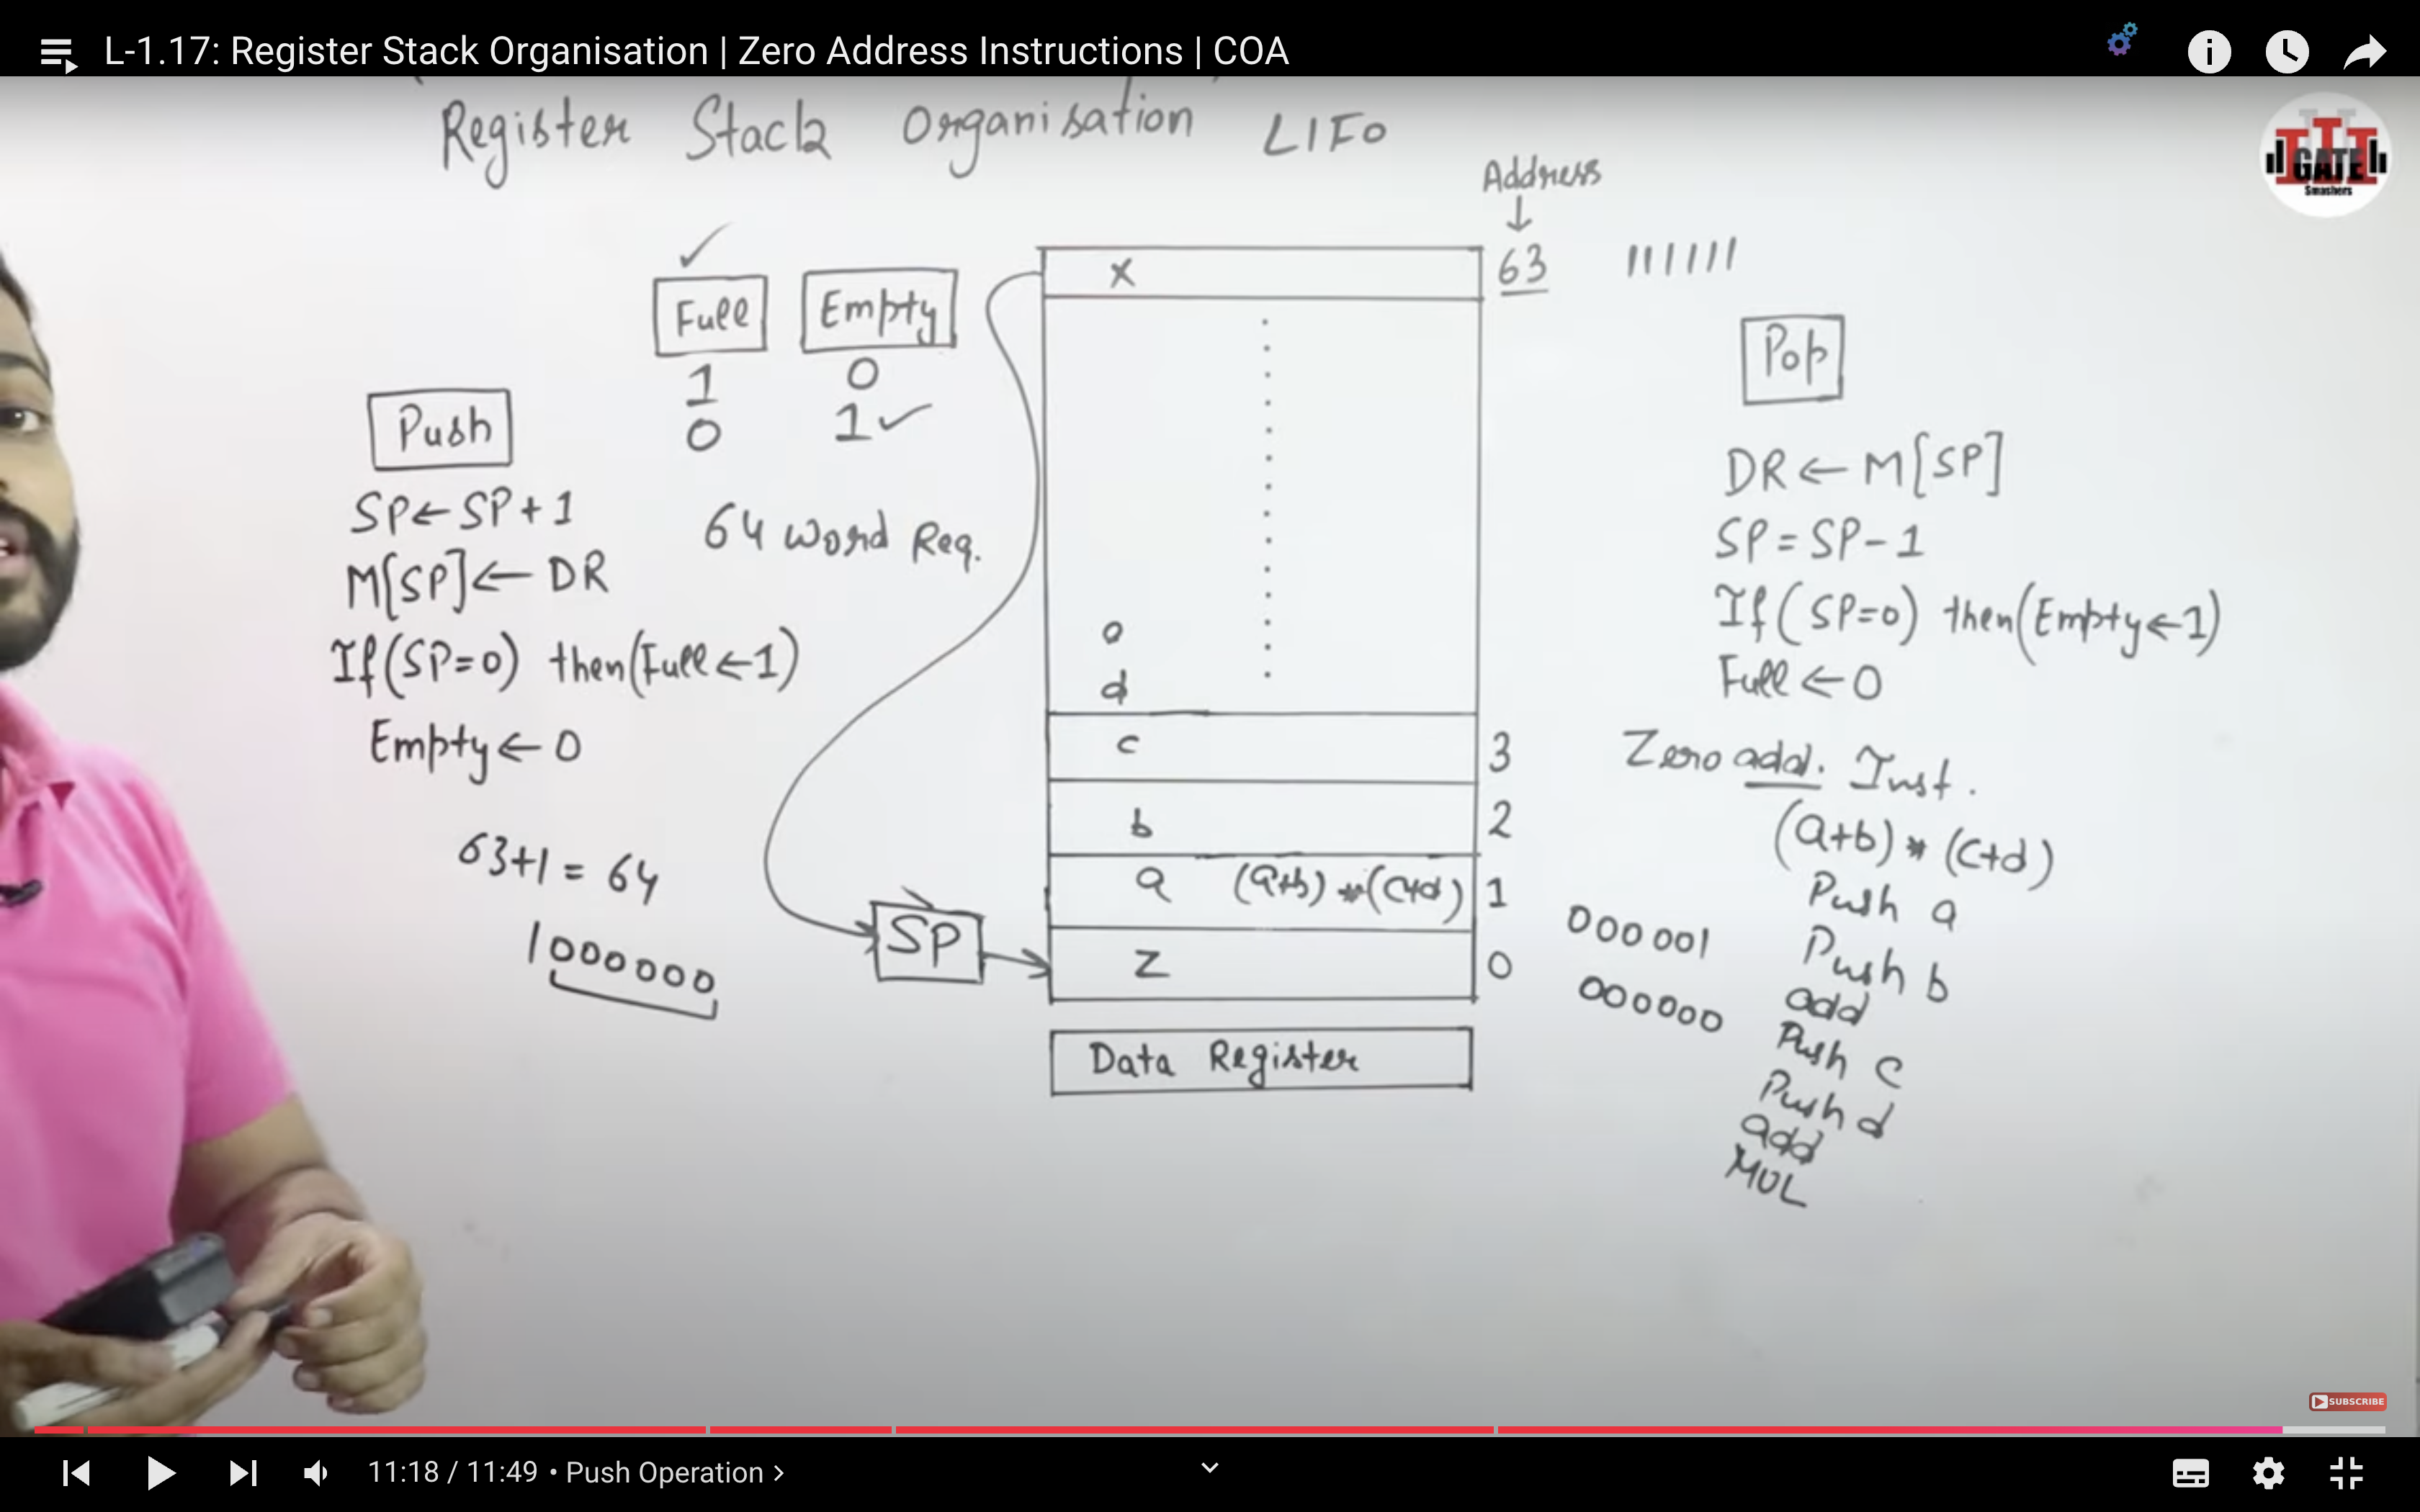 L-1.17: Register Stack Organisation | Zero Address Instructions | COA
Register Stack Organisation LIFO
GATE
Smashers
Address
↓
63 111111
x
Full Empty
1 0
0 1
Push
SP ← SP + 1
M[SP] ← DR
If (SP=0) then (Full ← 1)
Empty ← 0
64 Word Reg.
63+1 = 64
1000000
SP
e
d
c 3
b 2
a (a+b) * (c+d) 1 000001
z 0 000000
Data Register
Pop
DR ← M[SP]
SP = SP - 1
If (SP=0) then (Empty ← 1)
Full ← 0
Zero add. Inst.
(a+b) * (c+d)
Push a
Push b
add
Push c
Push d
add
MUL
SUBSCRIBE
11:18 / 11:49 • Push Operation >